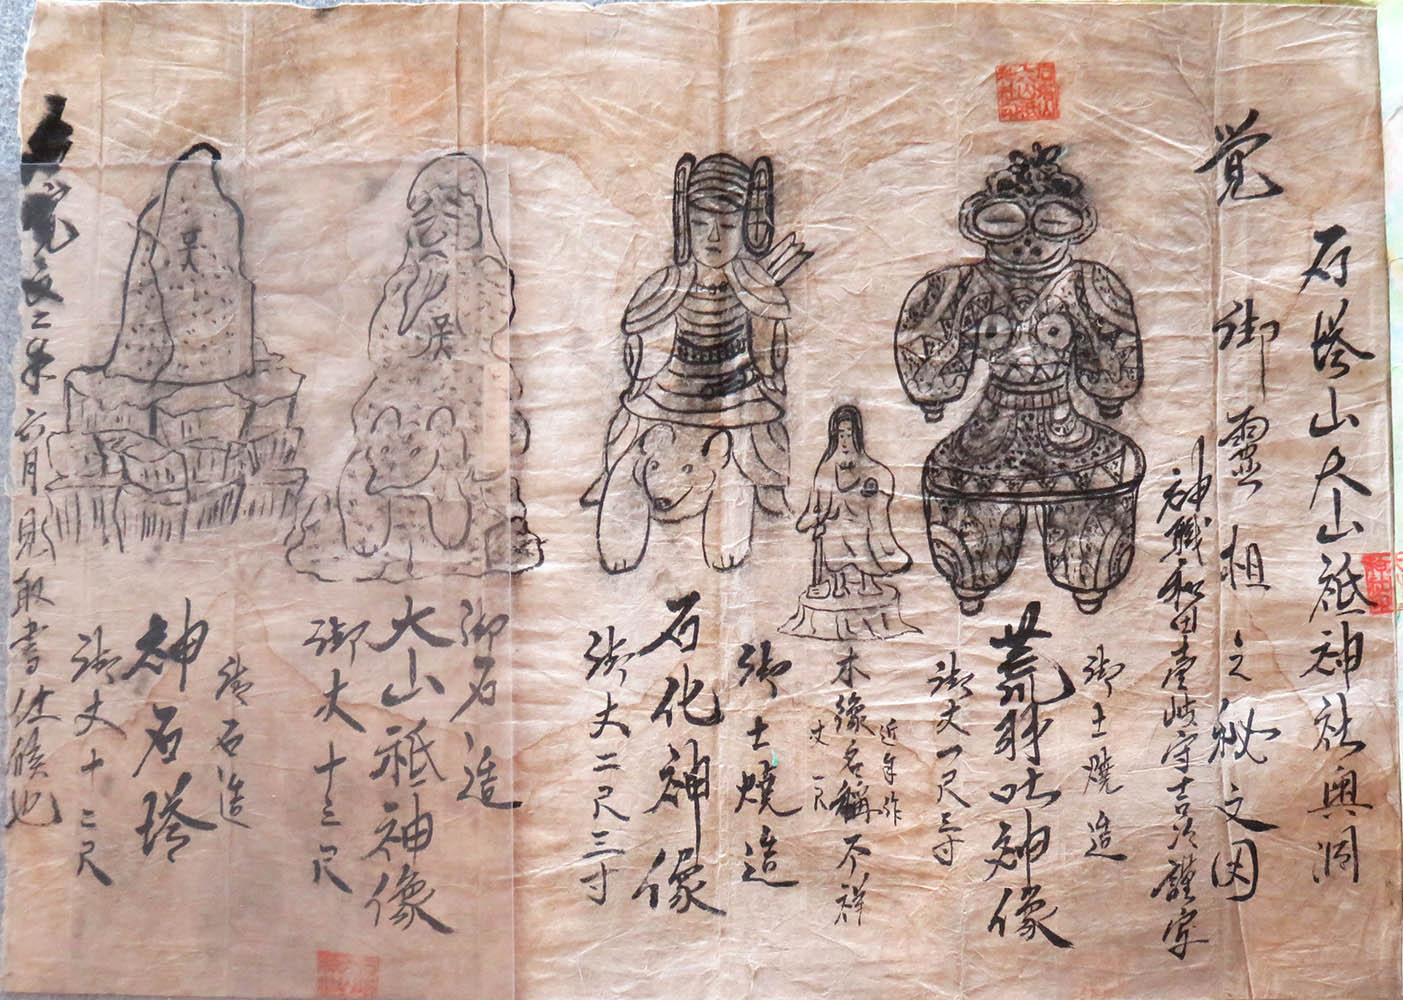 石塔山大山祗神社奥洞
覚
御霊祖之秘文図
神職和田壱岐守吉次謹写
御土焼造
荒羽吐神像
御丈一尺三寸
近年作
木像名称不祥
丈一尺
御土焼造
石化神像
御丈二尺三寸
御石造
大山祗神像
御丈十三尺
御石造
神石塔
御丈十二尺
寛文二年六月
書仕候也
呉
呉